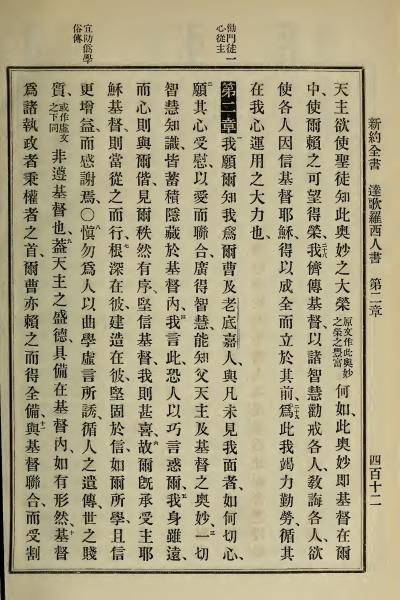 新約全書 達歌羅西人書 第二章 四百十二
天主欲使聖徒知此奧妙之大榮原文作此奧妙之榮之豐富何如、此奧妙即基督在爾
中、使爾賴之可望得榮、二十八我儕傳基督、以諸智慧勸戒各人、教誨各人、欲
使各人因信基督耶穌、得以成全而立於其前、二十九為此我竭力勤勞、循其
在我心運用之大力也、
第二章 我願爾知我為爾曹及老底嘉人、與凡未見我面者、如何切心、
二願其心受慰、以愛而聯合、廣得智慧、能知父天主及基督之奧妙、三一切
智慧知識、皆蓄積隱藏於基督內、四我言此、恐人以巧言惑爾、五我身雖遠、
而心則與爾偕、見爾秩然有序、堅信基督、我則甚喜、六故爾旣承受主耶
穌基督、則當從之而行、七根深在彼、建造在彼、堅固於信、如爾所學、且信
更增益、而感謝焉、〇八慎勿為人以曲學虛言所誘、循人之遺傳、世之賤
質、或作虛文之下同非遵基督也、九蓋天主之盛德、具備在基督內、如有形然、十基督
為諸執政者秉權者之首、爾曹亦賴之而得全備、十一與基督聯合、而受割
勸門徒一心從主
宜防僞學俗傳